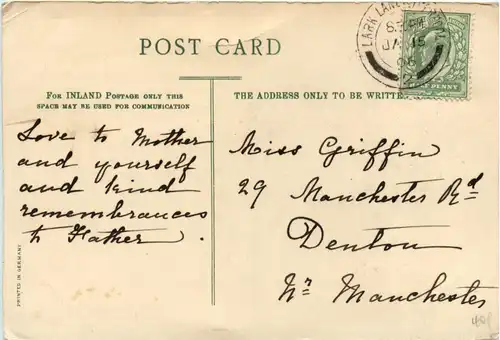 POST CARD
FOR INLAND POSTAGE ONLY THIS
SPACE MAY BE USED FOR COMMUNICATION
THE ADDRESS ONLY TO BE WRITTE
Love to Mother
and yourself
and kind
remembrances
to Father.
Miss Griffin
29 Manchester Rd
Denton
Nr Manchester
PRINTED IN GERMANY
LARK LANE
JA 15
06
PENNY